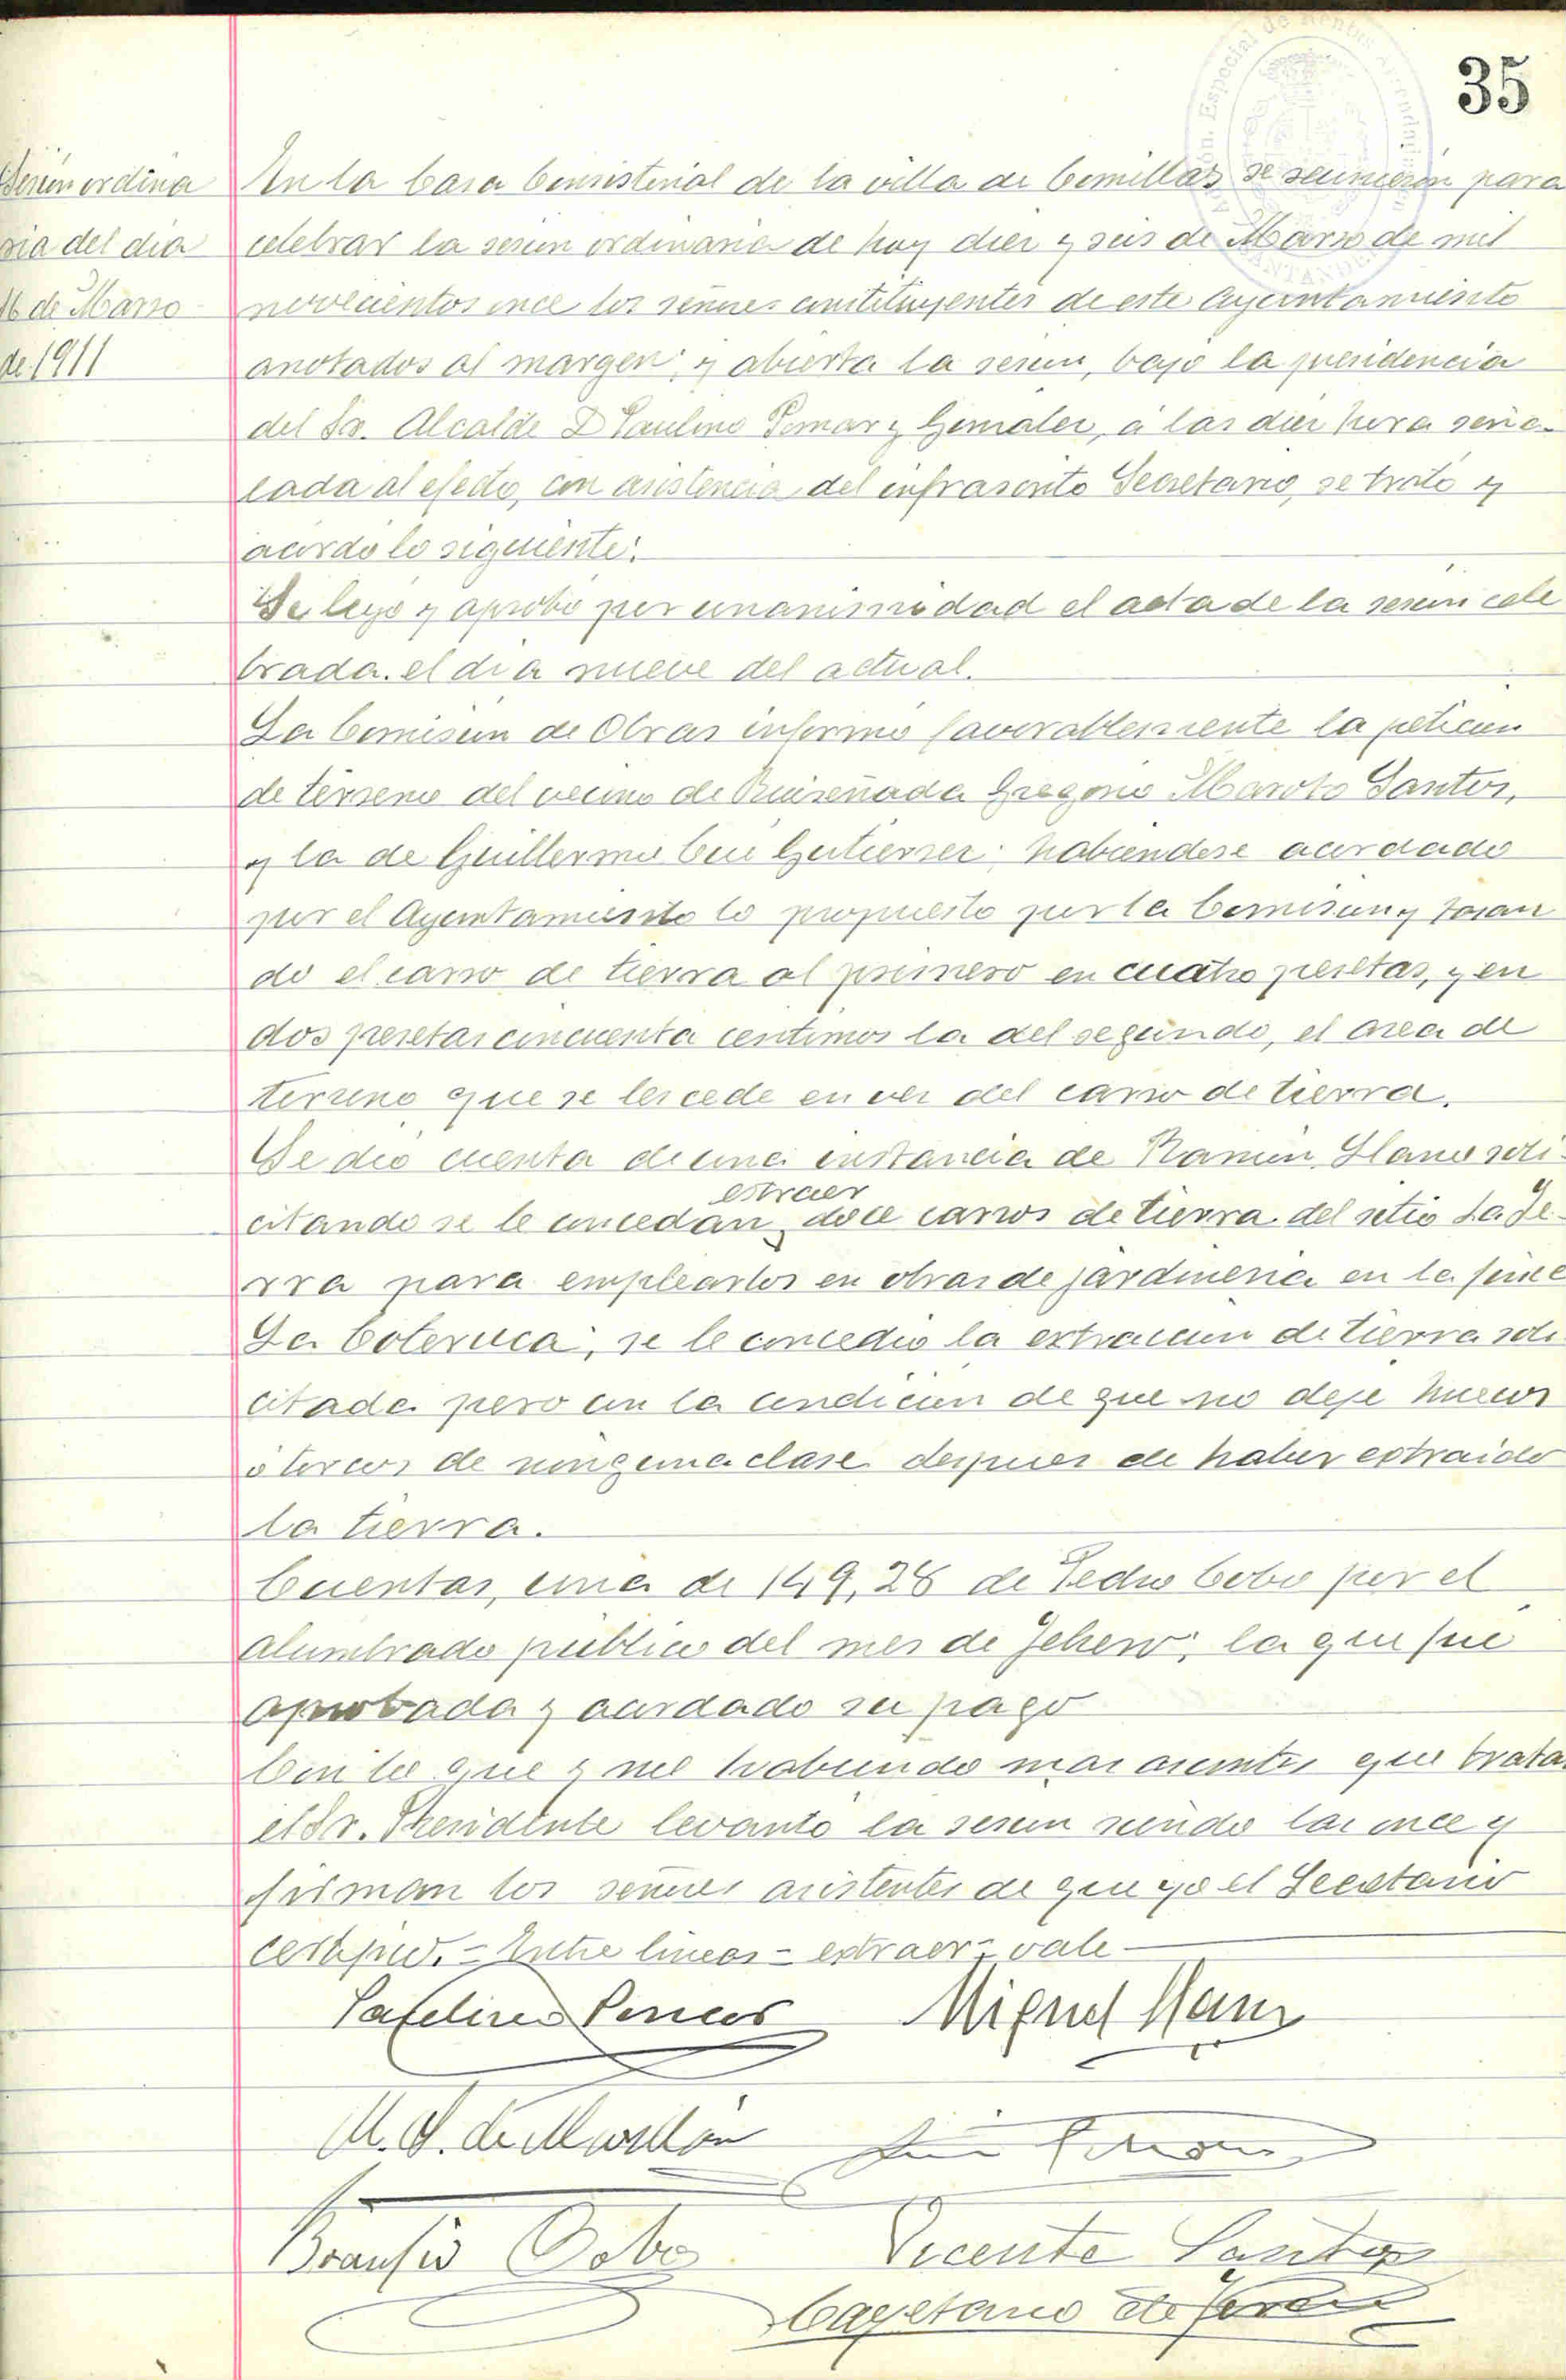 35
Sesión ordina
ria del dia
16 de Marzo
de 1911
En la Casa Consistorial de la villa de Comillas se reunieron para
celebrar la sesion ordinaria de hoy diez y seis de Marzo de mil
novecientos once los señores constituyentes de este Ayuntamiento
anotados al margen; y abierta la sesion, bajo la presidencia
del Sr. Alcalde D Paulino Pomar y Gonzalez, á las diez hora seña-
lada al efecto, con asistencia del infrascrito Secretario, se trató y
acordó lo siguiente:
Se leyó y aprobó por unanimidad el acta de la sesion cele
brada el dia nueve del actual.
La Comision de Obras informó favorablemente la peticion
de terreno del vecino de Ruiseñada Gregorio Maroto Santos,
y la de Guillermo Gutierrez; habiendose acordado
por el Ayuntamiento lo propuesto por la Comision y tasan
do el carro de tierra al primero en cuatro pesetas, y en
dos pesetas cincuenta centimos la del segundo, el area de
terreno que se les cede en vez del carro de tierra.
Se dió cuenta de una instancia de Ramon Llano soli-
extraer
citando se le concedan doce carros de tierra del sitio La Je-
rra para emplearlos en obras de jardineria en la finca
La Coteruca; se le concedió la extraccion de tierra soli
citada pero con la condicion de que no deje huecos
ó torcos de ninguna clase despues de haber extraido
la tierra.
Cuentas, una de 149,28 de Pedro Cobo por el
alumbrado público del mes de Febrero; la que fué
aprobada y acordado su pago
Con lo que y no habiendo mas asuntos que trata
el Sr. Presidente levantó la sesion siendo las once y
firman los señores asistentes de que yo el Secretario
certifico. - Entre lineas - extraer - vale
Paulino Pomar Miguel Llano
M. S. de Movellán
Braulio Cobo Vicente Santos
Cayetano de